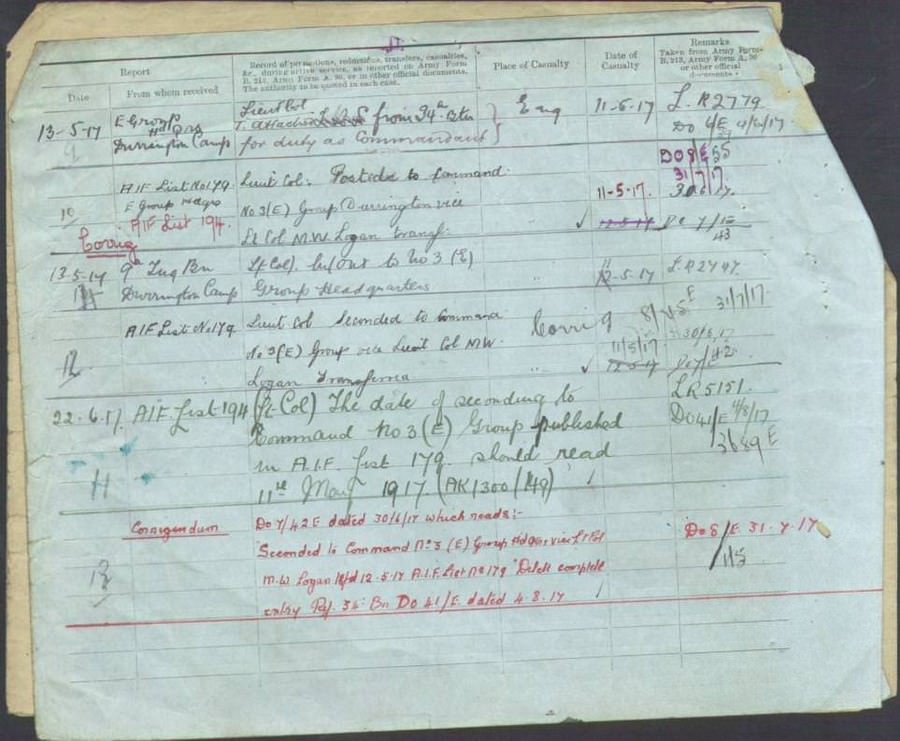 Report
Record of promotions, reductions, transfers, casualties,
&c., during active service, as reported on Army Form
B. 213, Army Form A. 36, or in other official documents.
The authority to be quoted in each case.
Place of Casualty
Date of
Casualty
Remarks
Taken from Army Form
B. 213, Army Form A. 36
or other official
documents
Date
From whom received
13-5-17 E Group Lieut Col. Eng 11-5-17 L.R 2779
Hd Qrs T. attached from 34th Btn
Durrington Camp for duty as Commandant
DO 8/E
31/7/17
AIF List No 179 Lieut Col: Posted to command
E Group Hdqrs No 3(E) Group Durrington vice 11-5-17.
10
AIF List 194. Lt Col M.W. Logan transf: 12-5-17 Do 7/
43
Corrig
13.5.17 9th Trg Bn Lt Col). to No 3 (E) 11-5-17 L.R 2747
Durrington Camp Group Headquarters
AIF List No 179 Lieut Col Seconded to Command Corrig 31/7/17
No 3(E) Group vice Lieut Col MW. 11/5/17 30/6/17
12 Logan Transferred 12-5-17 Do 7/42
22.6.17. AIF List 194 (Lt Col) The date of seconding to LR 5151.
Command No 3 (E) Group published DO 41/E 4/8/17
in A.I.F. List 179 should read 3689 E
11th May 1917. (AK1300/149)
Corrigendum Do 7/42 E dated 30/6/17 which reads:- Do 8/E 31-7-17
Seconded to Command No 3 (E) Group Hdqrs vice Lt Col 115
13 M.W. Logan 12-5-17 A.I.F. List No 179 Delete complete
entry Ref. 34 Bn Do 41/E dated 4-8-17